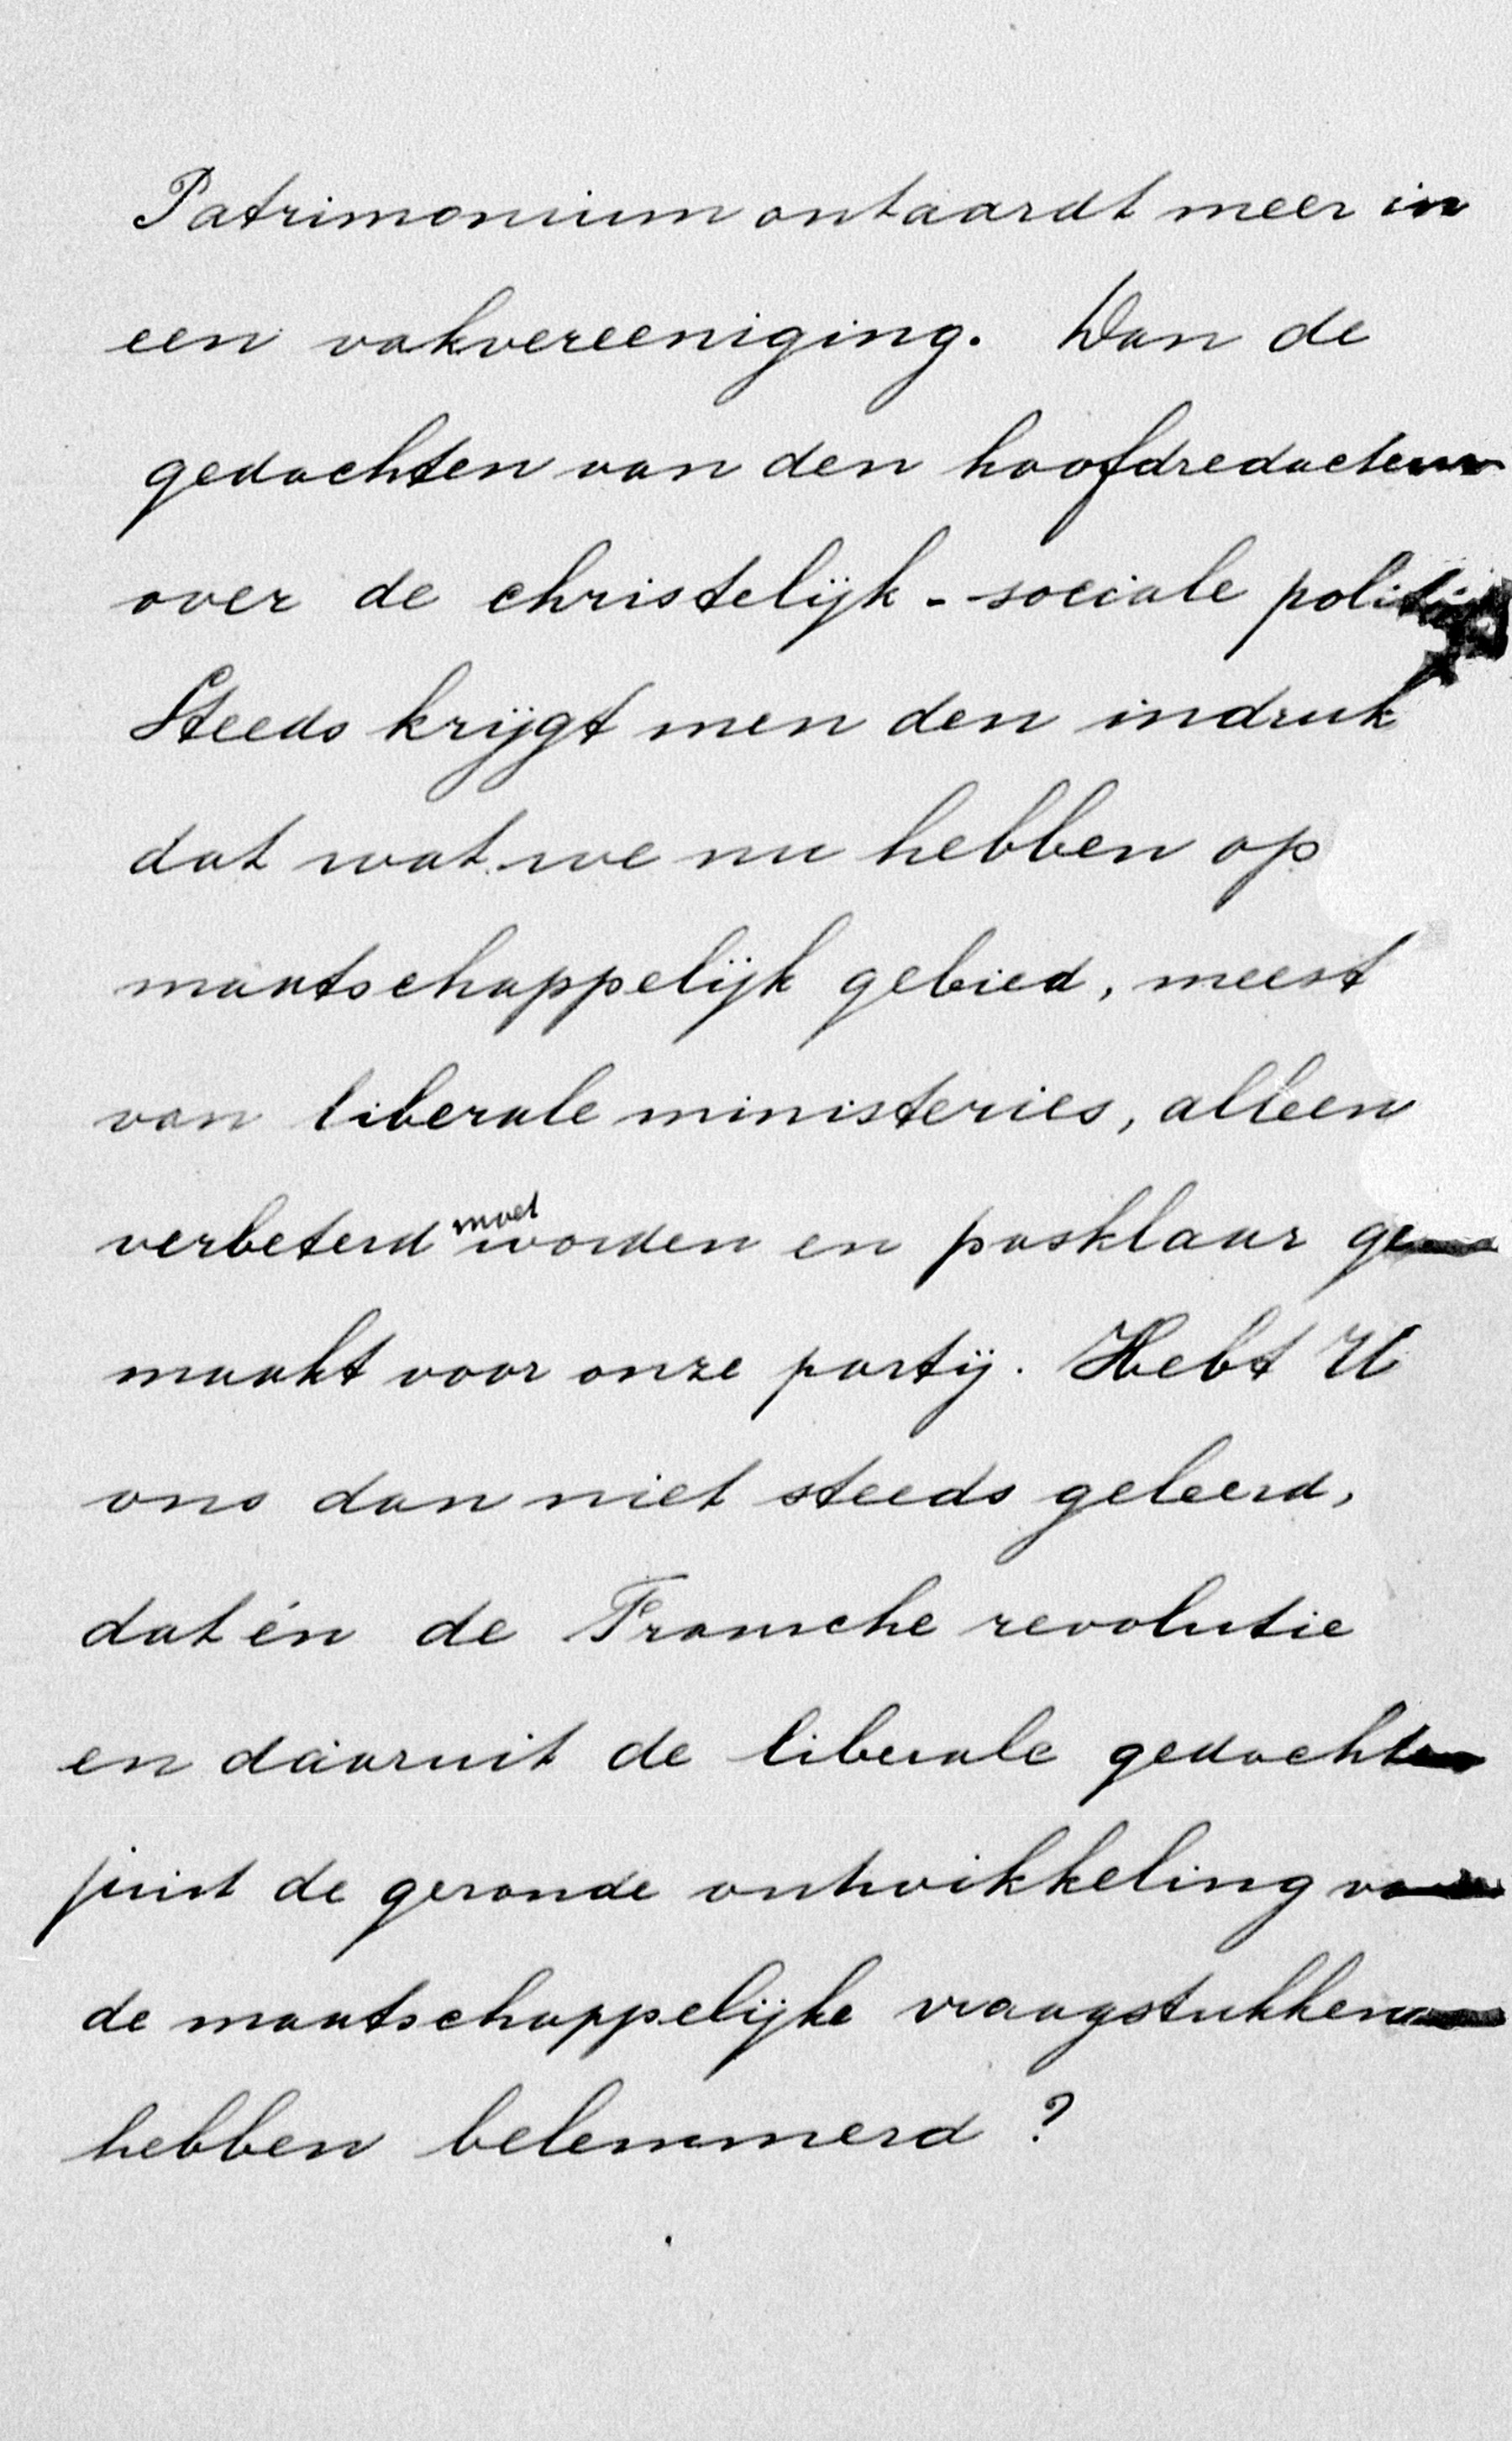 Patrimonium ontaardt meer in
een vakvereeniging. Dan de
gedachten van den hoofdredacteur
over de christelijk-sociale
Steeds krijgt men den indruk
dat wat we nu hebben op
maatschappelijk gebied, meest
van liberale ministeries, alleen
verbeterd moet worden en pasklaar ge-
maakt voor onze partij. Hebt U
ons dan niet steeds geleerd,
dat én de Fransche revolutie
en daaruit de liberale gedachten
juist de gezonde ontwikkeling van
de maatschappelijke vraagstukken
hebben belemmerd?